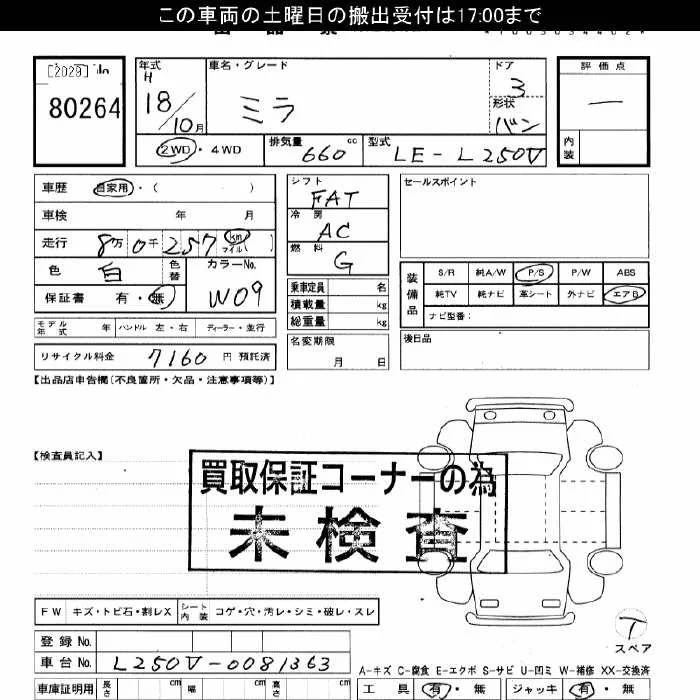 この車両の土曜日の搬出受付は17:00まで
[2029] No
80264
年式 H 18/10月
車名・グレード ミラ
ドア 3
形状 バン
評価点 —
内装
2WD・4WD
排気量 660 cc
型式 LE-L250V
車歴 自家用・( )
車検 年 月
走行 8万0千257 km マイル( )
色 白 色替
カラーNo. W09
保証書 有・無
モデル年式 年 ハンドル 左・右 ディーラー・並行
リサイクル料金 7160 円 預託済
シフト FAT
冷房 AC
燃料 G
乗車定員 名
積載量 kg
総重量 kg
名変期限 月 日
セールスポイント
装備品
S/R 純A/W P/S P/W ABS
純TV 純ナビ 革シート 外ナビ エアB
ナビ型番:
後日品
【出品店申告欄(不良箇所・欠品・注意事項等)】
【検査員記入】
買取保証コーナーの為
未検査
FW キズ・トビ石・割レX シート内装 コゲ・穴・汚レ・シミ・破レ・スレ
スペア
登録No.
車台No. L250V-0081363
A-キズ C-腐食 E-エクボ S-サビ U-凹ミ W-補修 XX-交換済
車庫証明用 長さ cm 幅 cm 高さ cm
工具 有・無 ジャッキ 有・無